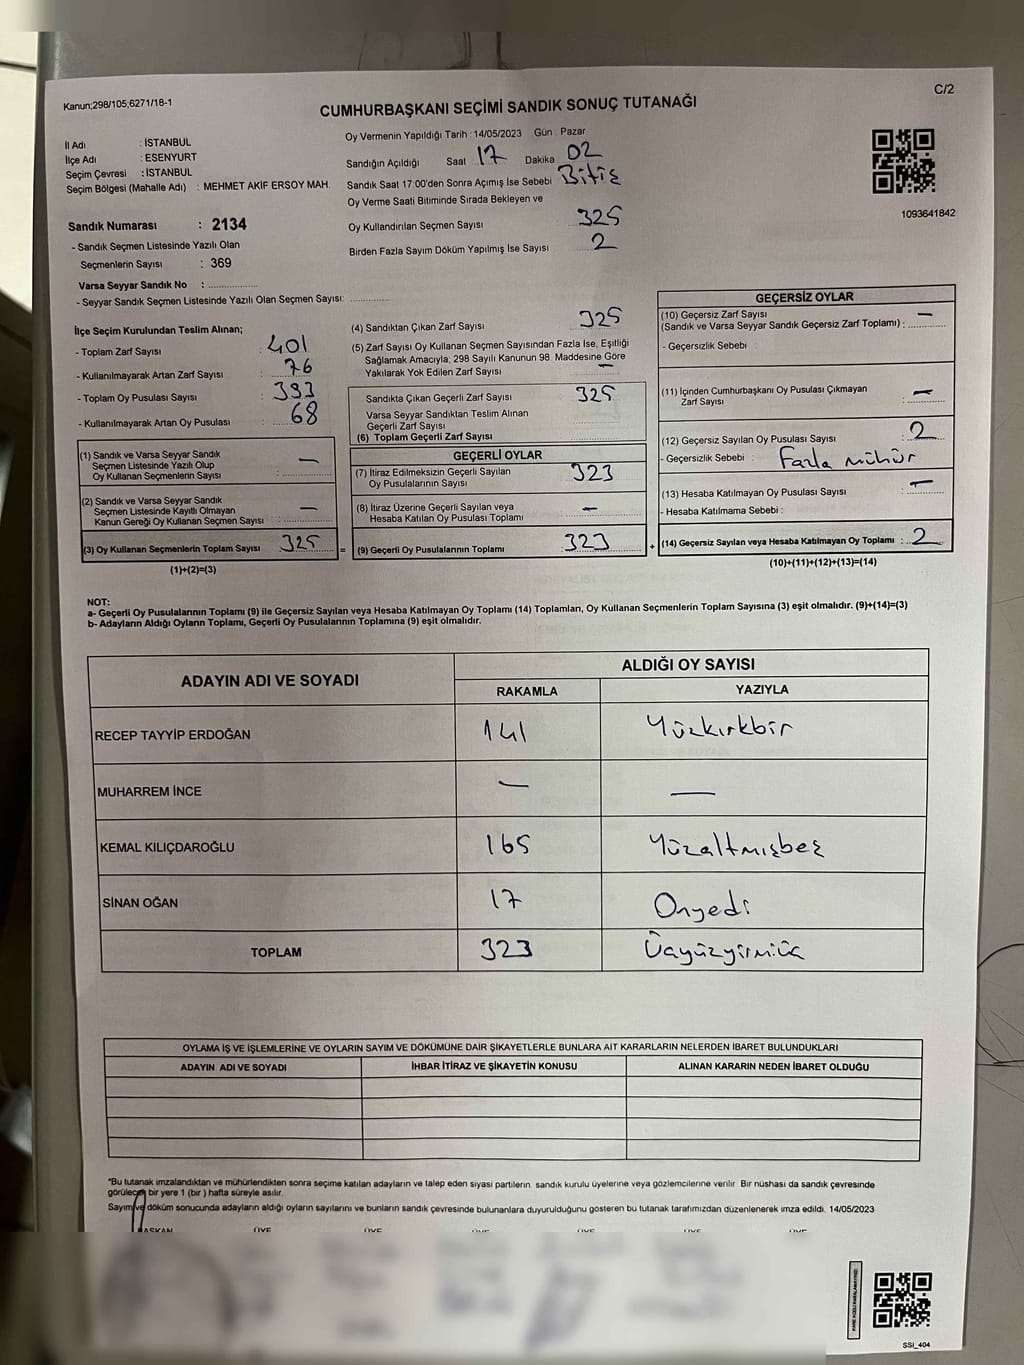 Kanun;298/105;6271/18-1
C/2
CUMHURBAŞKANI SEÇİMİ SANDIK SONUÇ TUTANAĞI
İl Adı : İSTANBUL
İlçe Adı : ESENYURT
Seçim Çevresi : İSTANBUL
Seçim Bölgesi (Mahalle Adı) : MEHMET AKİF ERSOY MAH.
Oy Vermenin Yapıldığı Tarih : 14/05/2023 Gün : Pazar
Sandığın Açıldığı Saat 17 Dakika 02
Sandık Saat 17:00'den Sonra Açımış İse Sebebi Bitiş
Oy Verme Saati Bitiminde Sırada Bekleyen ve
Oy Kullandırılan Seçmen Sayısı 325
Birden Fazla Sayım Döküm Yapılmış İse Sayısı 2
1093641842
Sandık Numarası : 2134
- Sandık Seçmen Listesinde Yazılı Olan
Seçmenlerin Sayısı : 369
Varsa Seyyar Sandık No :
- Seyyar Sandık Seçmen Listesinde Yazılı Olan Seçmen Sayısı:
İlçe Seçim Kurulundan Teslim Alınan;
- Toplam Zarf Sayısı : 401
- Kullanılmayarak Artan Zarf Sayısı : 76
- Toplam Oy Pusulası Sayısı : 393
- Kullanılmayarak Artan Oy Pusulası : 68
(1) Sandık ve Varsa Seyyar Sandık
Seçmen Listesinde Yazılı Olup
Oy Kullanan Seçmenlerin Sayısı : —
(2) Sandık ve Varsa Seyyar Sandık
Seçmen Listesinde Kayıtlı Olmayan
Kanun Gereği Oy Kullanan Seçmen Sayısı : —
(3) Oy Kullanan Seçmenlerin Toplam Sayısı : 325
(1)+(2)=(3)
(4) Sandıktan Çıkan Zarf Sayısı 325
(5) Zarf Sayısı Oy Kullanan Seçmen Sayısından Fazla İse, Eşitliği
Sağlamak Amacıyla, 298 Sayılı Kanunun 98. Maddesine Göre
Yakılarak Yok Edilen Zarf Sayısı —
Sandıkta Çıkan Geçerli Zarf Sayısı 325
Varsa Seyyar Sandıktan Teslim Alınan
Geçerli Zarf Sayısı
(6) Toplam Geçerli Zarf Sayısı
GEÇERLİ OYLAR
(7) İtiraz Edilmeksizin Geçerli Sayılan
Oy Pusulalarının Sayısı 323
(8) İtiraz Üzerine Geçerli Sayılan veya
Hesaba Katılan Oy Pusulası Toplamı —
= (9) Geçerli Oy Pusulalarının Toplamı 323 +
GEÇERSİZ OYLAR
(10) Geçersiz Zarf Sayısı
(Sandık ve Varsa Seyyar Sandık Geçersiz Zarf Toplamı) : —
- Geçersizlik Sebebi :
(11) İçinden Cumhurbaşkanı Oy Pusulası Çıkmayan
Zarf Sayısı : —
(12) Geçersiz Sayılan Oy Pusulası Sayısı : 2
- Geçersizlik Sebebi : Fazla mühür
(13) Hesaba Katılmayan Oy Pusulası Sayısı : —
- Hesaba Katılmama Sebebi :
(14) Geçersiz Sayılan veya Hesaba Katılmayan Oy Toplamı : 2
(10)+(11)+(12)+(13)=(14)
NOT:
a- Geçerli Oy Pusulalarının Toplamı (9) ile Geçersiz Sayılan veya Hesaba Katılmayan Oy Toplamı (14) Toplamları, Oy Kullanan Seçmenlerin Toplam Sayısına (3) eşit olmalıdır. (9)+(14)=(3)
b- Adayların Aldığı Oyların Toplamı, Geçerli Oy Pusulalarının Toplamına (9) eşit olmalıdır.
ADAYIN ADI VE SOYADI ALDIĞI OY SAYISI
RAKAMLA YAZIYLA
RECEP TAYYİP ERDOĞAN 141 Yüzkırkbir
MUHARREM İNCE — —
KEMAL KILIÇDAROĞLU 165 Yüzaltmışbeş
SİNAN OĞAN 17 Onyedi
TOPLAM 323 Üçyüzyirmiüç
OYLAMA İŞ VE İŞLEMLERİNE VE OYLARIN SAYIM VE DÖKÜMÜNE DAİR ŞİKAYETLERLE BUNLARA AİT KARARLARIN NELERDEN İBARET BULUNDUKLARI
ADAYIN ADI VE SOYADI İHBAR İTİRAZ VE ŞİKAYETİN KONUSU ALINAN KARARIN NEDEN İBARET OLDUĞU
"Bu tutanak imzalandıktan ve mühürlendikten sonra seçime katılan adayların ve talep eden siyasi partilerin sandık kurulu üyelerine veya gözlemcilerine verilir. Bir nüshası da sandık çevresinde
görülecek bir yere 1 (bir ) hafta süreyle asılır.
Sayım ve döküm sonucunda adayların aldığı oyların sayılarını ve bunların sandık çevresinde bulunanlara duyurulduğunu gösteren bu tutanak tarafımızdan düzenlenerek imza edildi. 14/05/2023
BAŞKAN ÜYE ÜYE ÜYE ÜYE ÜYE ÜYE
SSİ_404